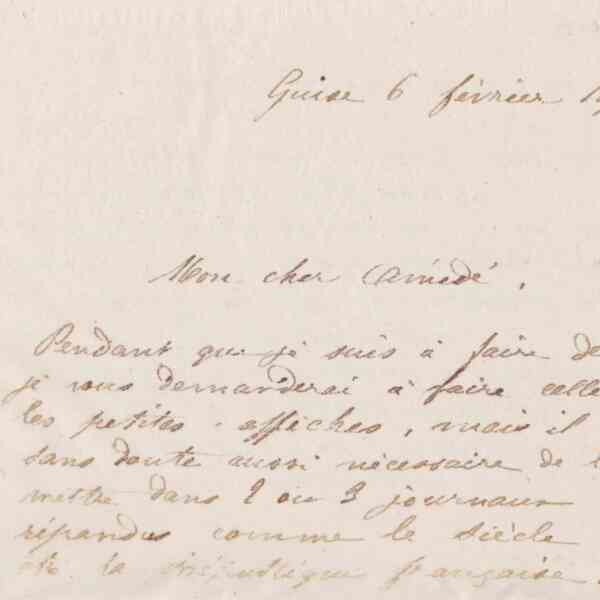 Guise 6 février
Mon cher Amédé,
Pendant que je suis à faire de
je vous demanderai à faire celle
les petites affiches, mais il
sans doute aussi nécessaire de
mettre dans 2 ou 3 journaux
répandus comme le siècle
et la république française